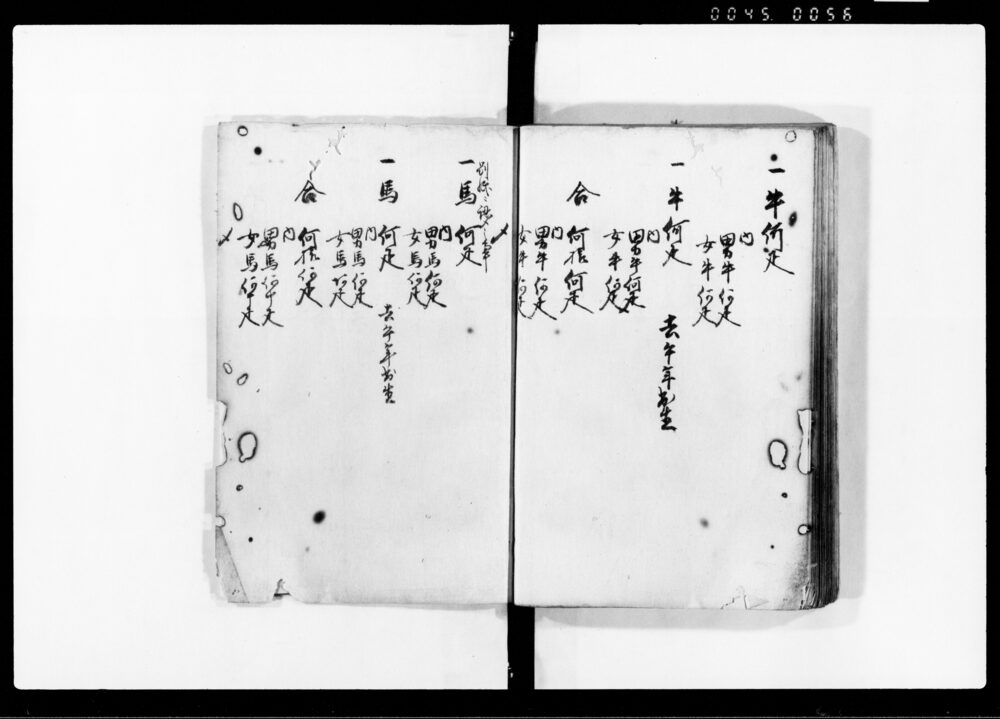 0045. 0056
一牛何疋
内
男牛何疋
女牛何疋
一牛何疋 去午年出生
内
男牛何疋
女牛何疋
合何拾何疋
内
男牛何疋
女牛何疋
一馬何疋
内
男馬何疋
女馬何疋
一馬何疋 去午年出生
内
男馬何疋
女馬何疋
合何拾何疋
内
男馬何疋
女馬何疋
〆